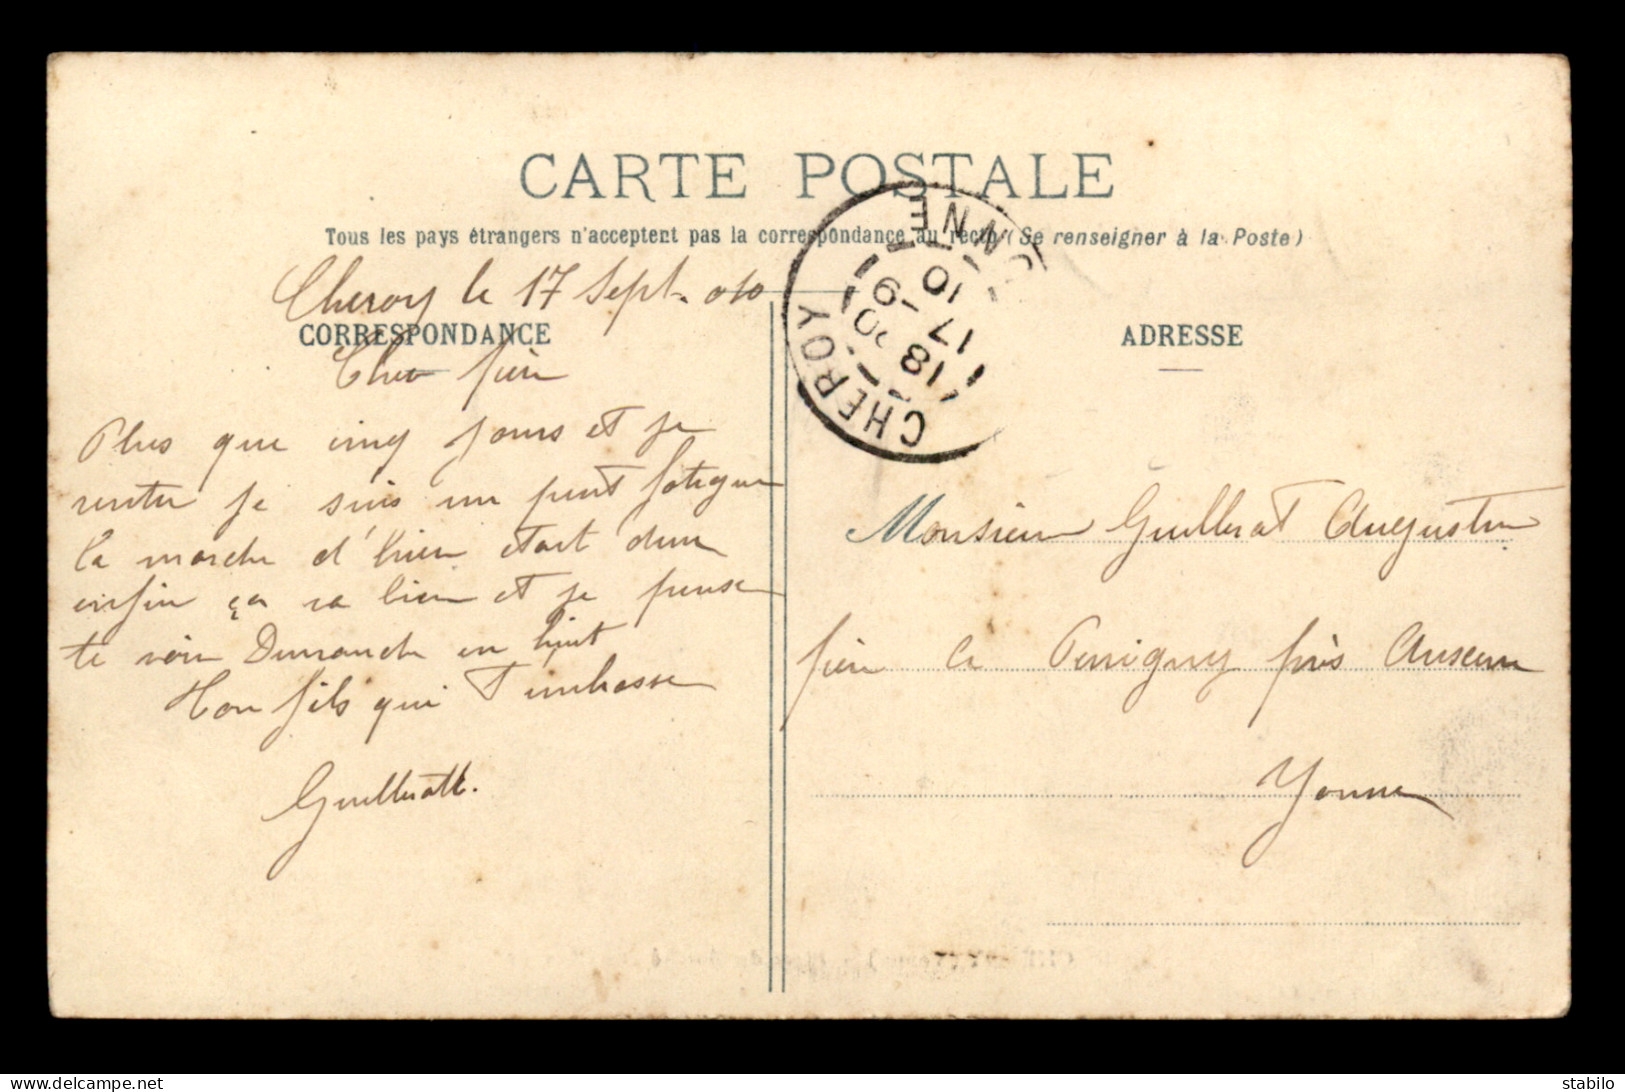 CARTE POSTALE
Tous les pays étrangers n'acceptent pas la correspondance au recto (Se renseigner à la Poste)
Cheroy le 17 Sept.
CORRESPONDANCE
ADRESSE
CHEROY
YONNE
18
17 - 9
10
Cher père
Plus que cinq jours et je
rentre je suis un peut fatigue
la marche d'hier etait dure
enfin ça va bien et je pense
te voir Dimanche en huit
Ton fils qui T'embrasse
Guilleratt.
Monsieur Guillerat Augustin
père a Perrigny près Auxerre
Yonne
delcampe.net
stabilo